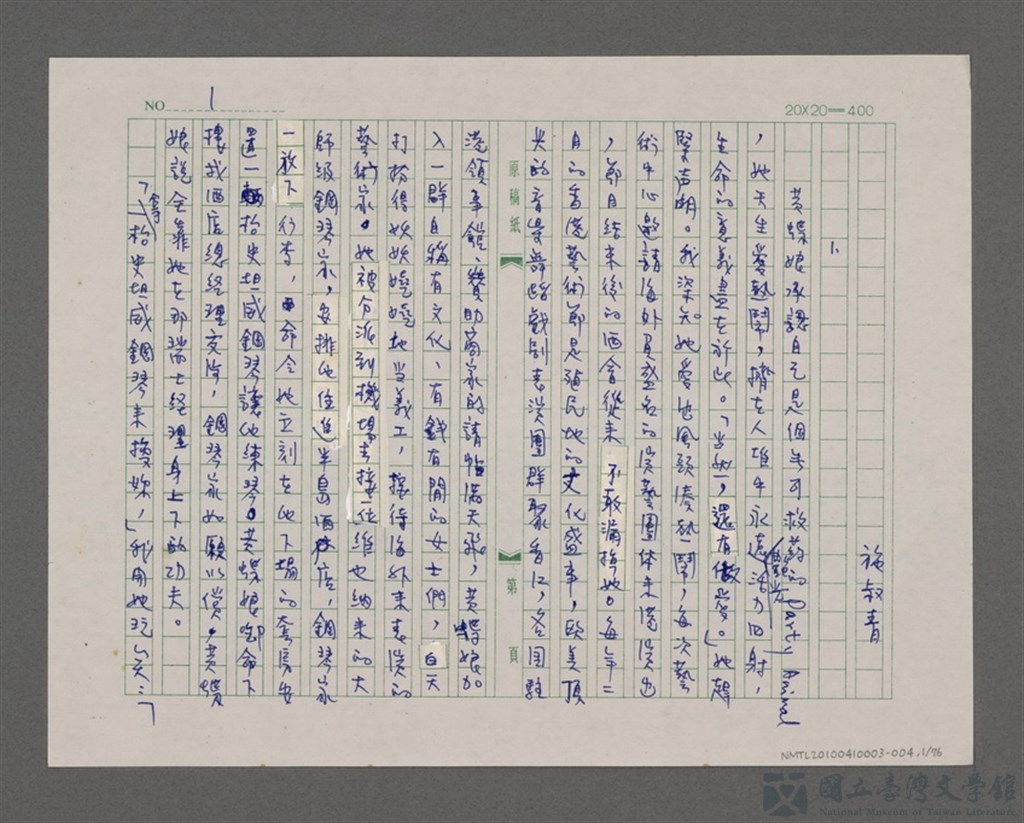 NO 1
20X20＝400
施叔青
1、
黃蝶娘承認自己是個無可救藥的 Party Animal
，她天生愛熱鬧，擠在人堆中永遠活力四射，
生命的意義盡在於此。「當然，還有做愛。」她趕
緊聲明。我深知她愛出風頭湊熱鬧，每次藝
術中心邀請海外負盛名的演藝團体來港演出
，節目結束後的酒會從來不敢漏掉她。每年二
月的香港藝術節是殖民地的文化盛事，歐美頂
尖的音樂舞蹈戲劇表演團群聚香江，各國駐
原稿紙
第 頁
港領事館、贊助商家的請帖滿天飛，黃蝶娘加
入一群自稱有文化、有錢有閒的女士們，白天
打扮得妖妖嬈嬈地當義工，接待海外來表演的
藝術家。她被分派到機場去接一位維也納來的大
師級鋼琴家，安排他住進半島酒店，鋼琴家
一放下行李，命令她立刻在他下榻的套房安
置一架史坦威鋼琴讓他練琴。黃蝶娘啣命下
樓找酒店總經理交涉，鋼琴家如願以償，黃蝶
娘說全靠她在那瑞士經理身上下的功夫。
「拿史坦威鋼琴來換妳，」我用她玩笑：「
NMTL20100410003-004,1/76
國立臺灣文學館
National Museum of Taiwan Literature